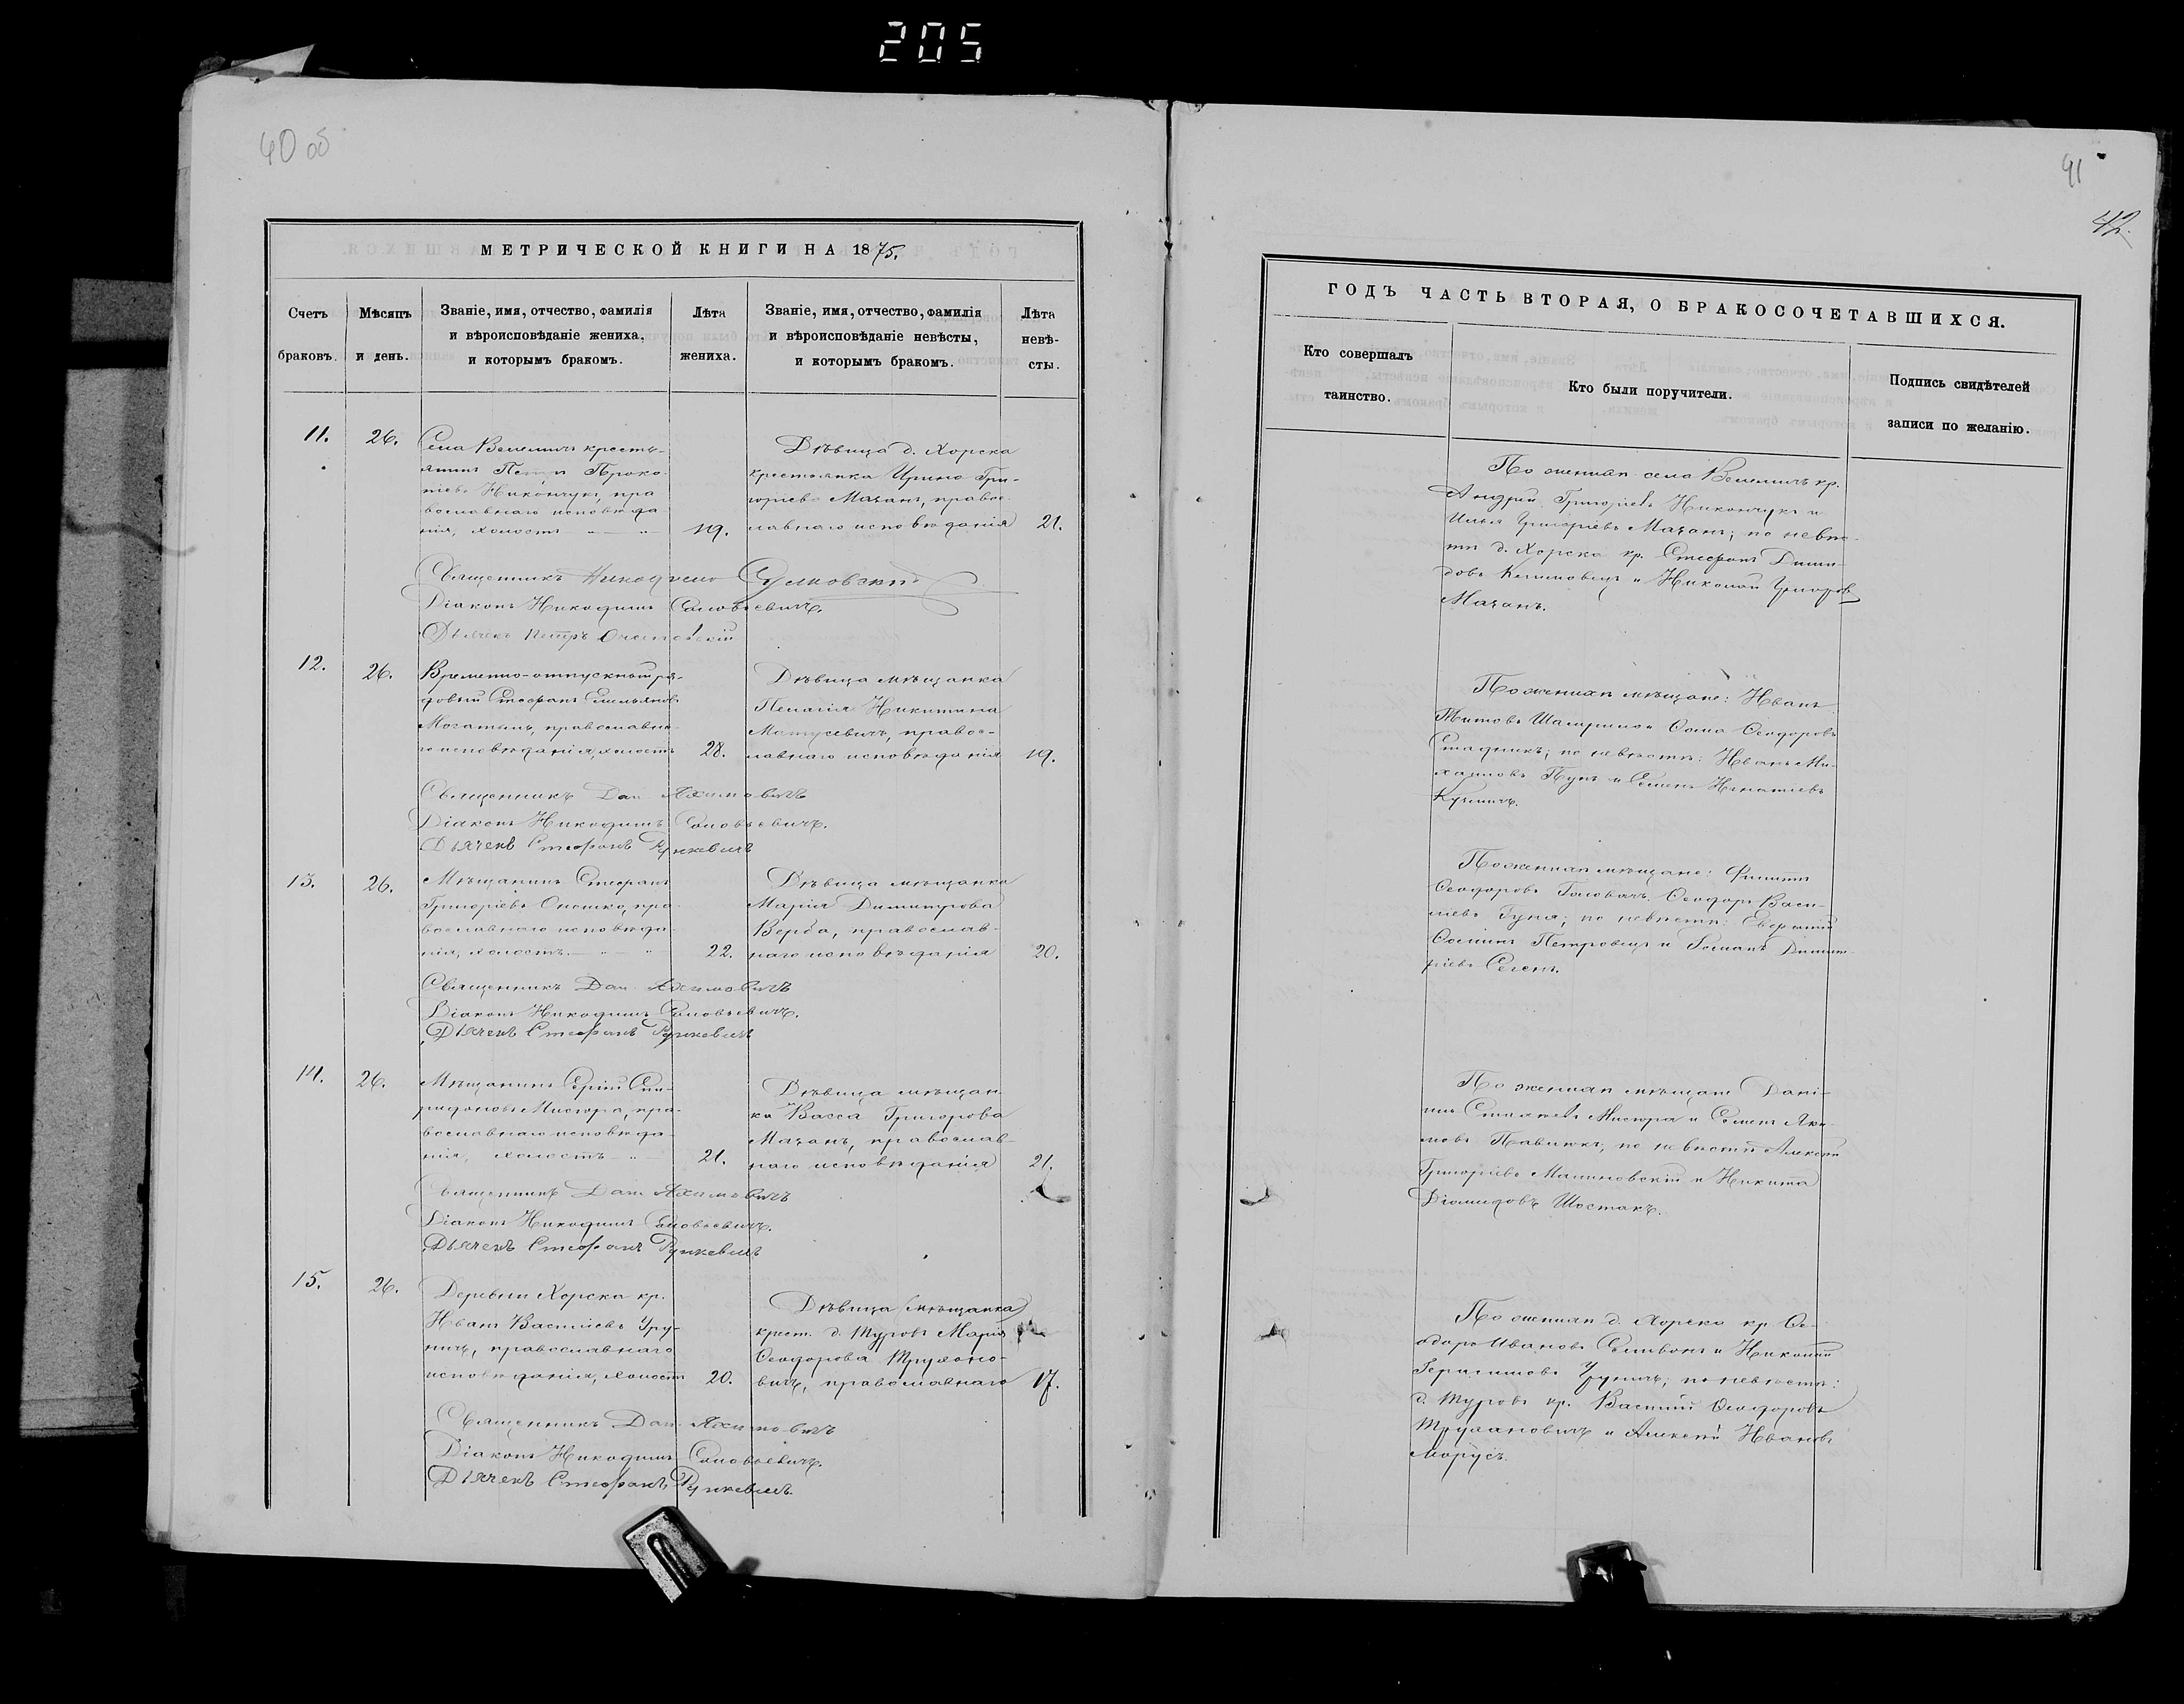 205
40 об
МЕТРИЧЕСКОЙ КНИГИ НА 1875.
Счетъ браковъ.
Мѣсяцъ и день.
Званіе, имя, отчество, фамилія
и вѣроисповѣданіе жениха,
и которымъ бракомъ.
Лѣта
жениха.
Званіе, имя, отчество, фамилія
и вѣроисповѣданіе невѣсты,
и которымъ бракомъ.
Лѣта
невѣ-
сты.
11.
26.
Села Велемичъ кресть-
янинъ Петръ Проко-
піевъ Никончукъ, пра
вославнаго исповѣда
нія, холостъ
19.
Дѣвица д. Хорска
крестьянка Ирина Гри-
горіева Мазанъ, правос-
лавнаго исповѣданія
21.
Священникъ
Діаконъ Никодимъ Соловьевичъ.
Дьячекъ Петръ
12.
26.
Временно-отпускный ря-
довый Стефанъ Емельяновъ
православна-
го исповѣданія, холостъ
28.
Дѣвица мѣщанка
Пелагія Никитина
Матусевичъ, правос-
лавнаго исповѣданія
19.
Священникъ Дан. Яхимовичъ
Діаконъ Никодимъ Соловьевичъ.
Дьячекъ Стефанъ Рункевичъ
13.
26.
Мѣщанинъ Стефанъ
Григоріевъ Оношко, пра-
вославнаго исповѣда-
нія, холостъ
22.
Дѣвица мѣщанка
Марія Димитрова
Верба, православ-
наго исповѣданія
20.
Священникъ Дан. Яхимовичъ
Діаконъ Никодимъ Соловьевичъ.
Дьячекъ Стефанъ Рункевичъ
14.
26.
Мѣщанинъ Сергій Спи-
ридоновъ Мисюра, пра-
вославнаго исповѣда-
нія, холостъ
21.
Дѣвица мѣщан-
ка Васса Григорова
Мазанъ, православ-
наго исповѣданія
21.
Священникъ Дан. Яхимовичъ
Діаконъ Никодимъ Соловьевичъ.
Дьячекъ Стефанъ Рункевичъ
15.
26.
Деревни Хорска кр.
Иванъ Василіевъ Уру-
ничъ, православнаго
исповѣданія, холостъ
20.
Дѣвица (мѣщанка)
крест. д. Туровъ Марія
Феодорова Трухано-
вичъ, православнаго
17.
Священникъ Дан. Яхимовичъ
Діаконъ Никодимъ Соловьевичъ.
Дьячекъ Стефанъ Рункевичъ.
41
42.
ГОДЪ ЧАСТЬ ВТОРАЯ, О БРАКОСОЧЕТАВШИХСЯ.
Кто совершалъ
таинство.
Кто были поручители.
Подпись свидѣтелей
записи по желанію.
По женихѣ села Велемичъ кр.
Андрей Григоріевъ Никончукъ и
Илья Григоріевъ Мазанъ; по невѣс-
тѣ д. Хорска кр. Стефанъ
и Николай Григоровъ
Мазанъ.
По женихѣ мѣщане: Иванъ
Титовъ и Ѳома Ѳеодоровъ
Стадникъ; по невѣстѣ: Иванъ Ми-
хаиловъ и Семенъ Игнатіевъ
Кузмичъ.
По женихѣ мѣщане: Филиппъ
Ѳеодоровъ Головачъ, Ѳеодоръ Васи-
ліевъ по невѣстѣ:
Петровецъ и Романъ Димит-
ріевъ
По женихѣ мѣщане Дани-
илъ Мисюра и Семенъ Яки-
мовъ по невѣстѣ Алексѣй
Григоріевъ Малиновскій и Никита
Діомидовъ Шостакъ.
По женихѣ д. Хорска кр. Ѳе-
одоръ Ивановъ и Николай
Герасимовъ Уруничъ; по невѣстѣ:
д. Туровъ кр. Василій Ѳеодоровъ
Трухановичъ и Алексѣй Ивановъ
Морусъ.